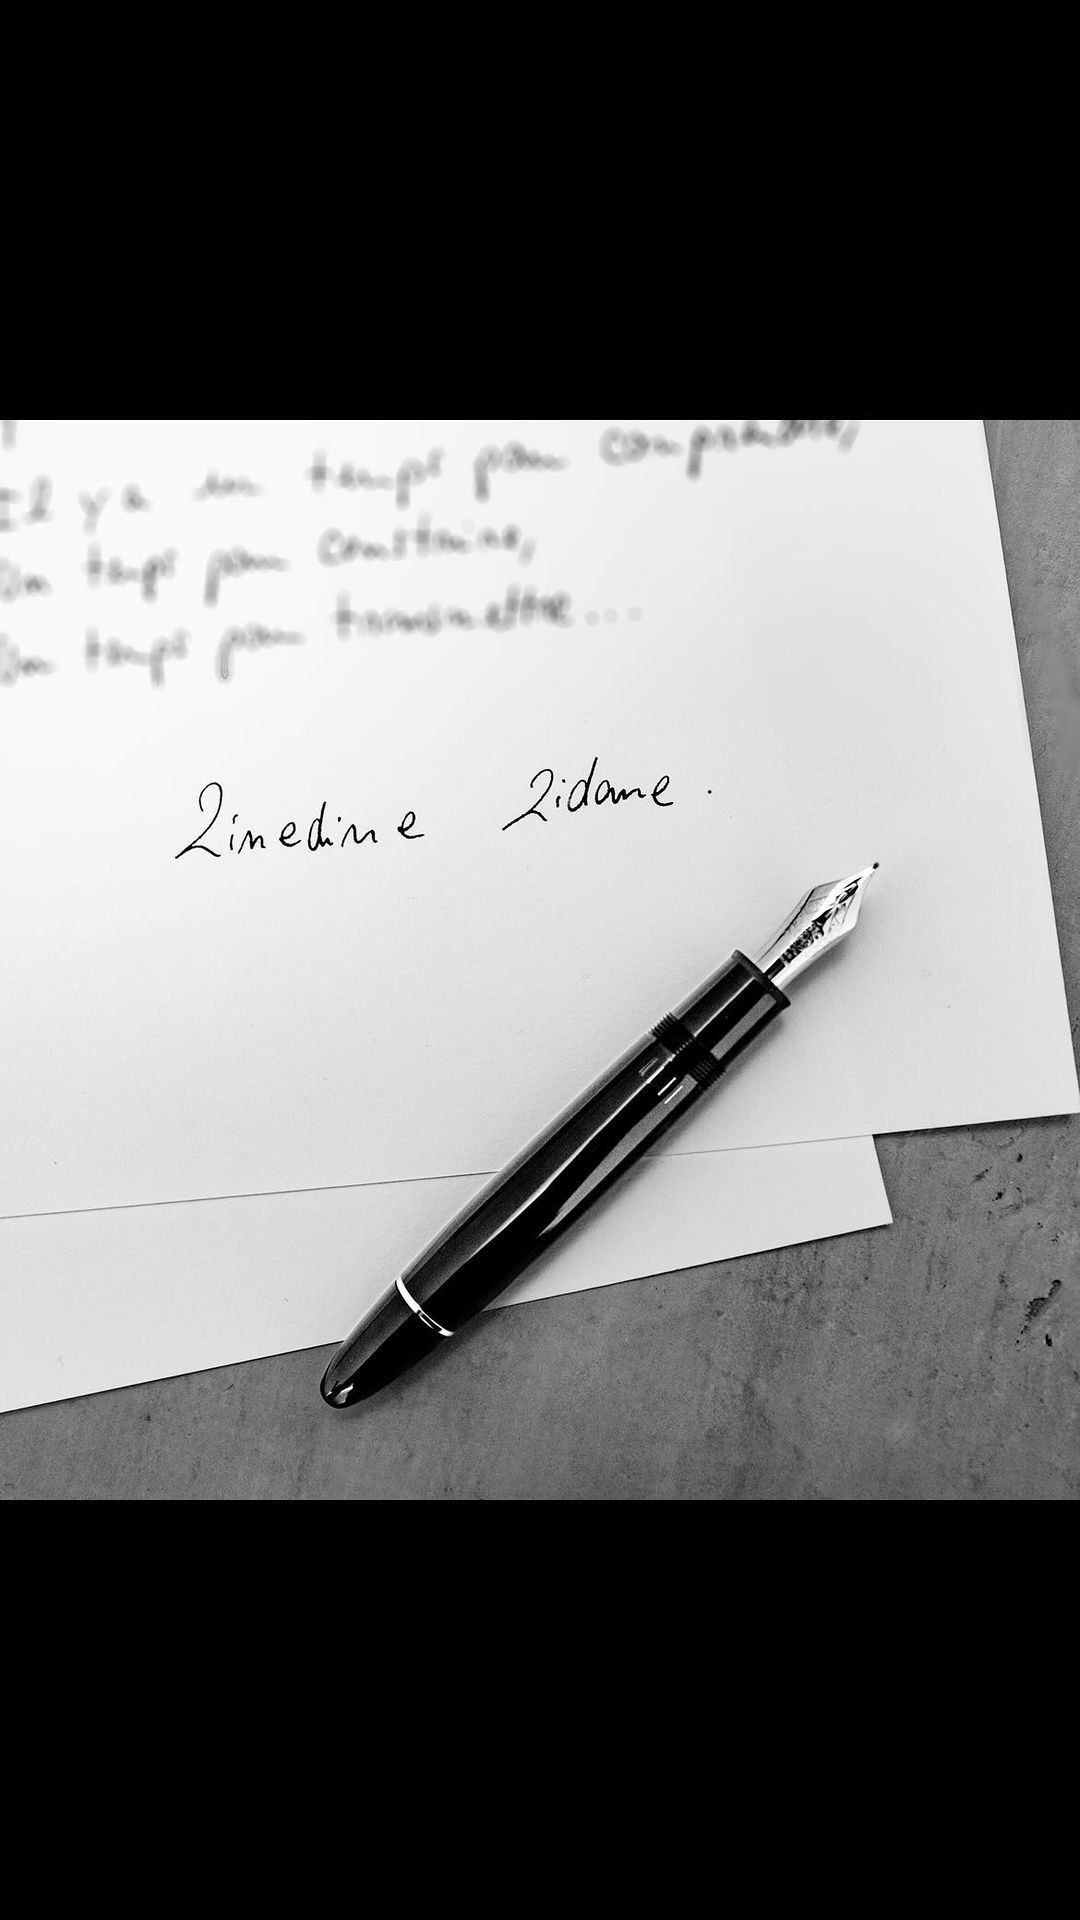 Il y a un temps pour comprendre,
Un temps pour construire,
Un temps pour transmettre...
Zinedine Zidane.